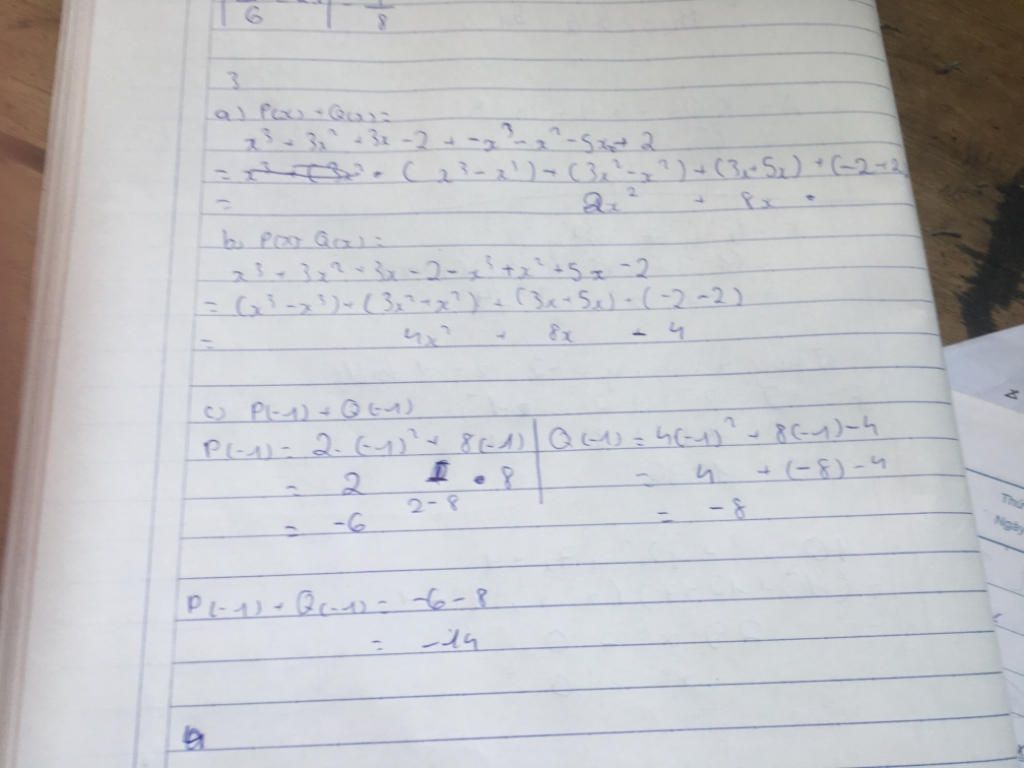 6 8
3
a) P(x) + Q(x) =
x³ + 3x² + 3x - 2 + -x³ - x² - 5x + 2
= (x³ - x³) + (3x² - x²) + (3x + 5x) + (-2+2
= 2x² + 8x
b) P(x) - Q(x) =
x³ + 3x² + 3x - 2 - x³ + x² + 5x - 2
= (x³ - x³) + (3x² + x²) + (3x + 5x) + (-2 - 2)
= 4x² + 8x - 4
c) P(-1) + Q(-1)
P(-1) = 2. (-1)² + 8(-1) Q(-1) = 4(-1)² + 8(-1) - 4
= 2 8 = 4 + (-8) - 4
2 - 8
= -6 = -8
P(-1) + Q(-1) = -6 - 8
= -14
Thứ
Ngày